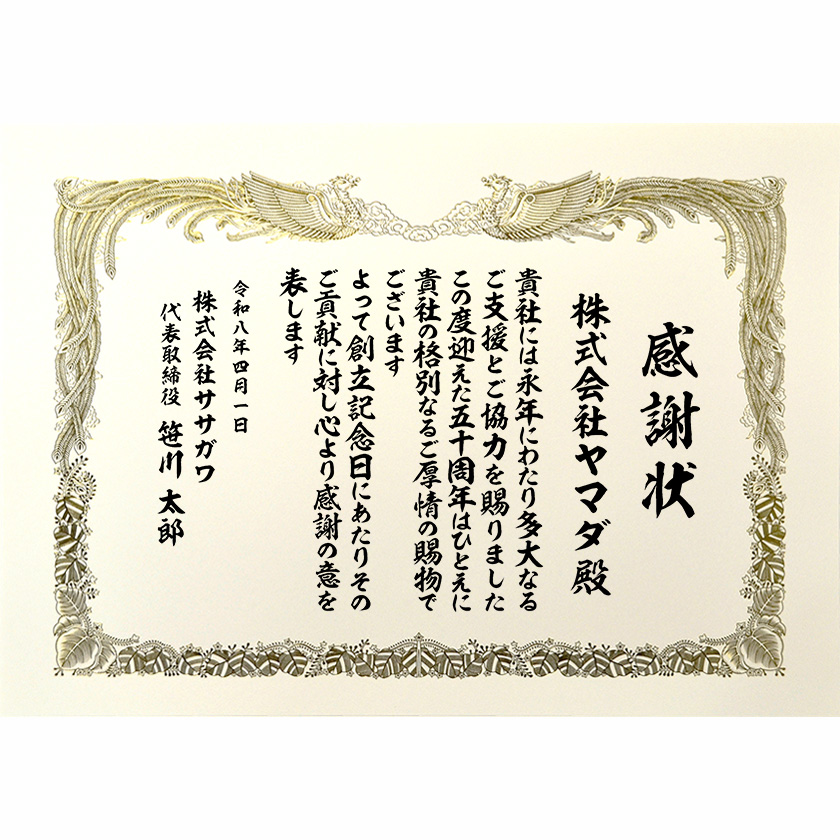 感謝状
株式会社ヤマダ殿
貴社には永年にわたり多大なる
ご支援とご協力を賜りました
この度迎えた五十周年はひとえに
貴社の格別なるご厚情の賜物で
ございます
よって創立記念日にあたりその
ご貢献に対し心より感謝の意を
表します
令和八年四月一日
株式会社ササガワ
代表取締役 笹川 太郎